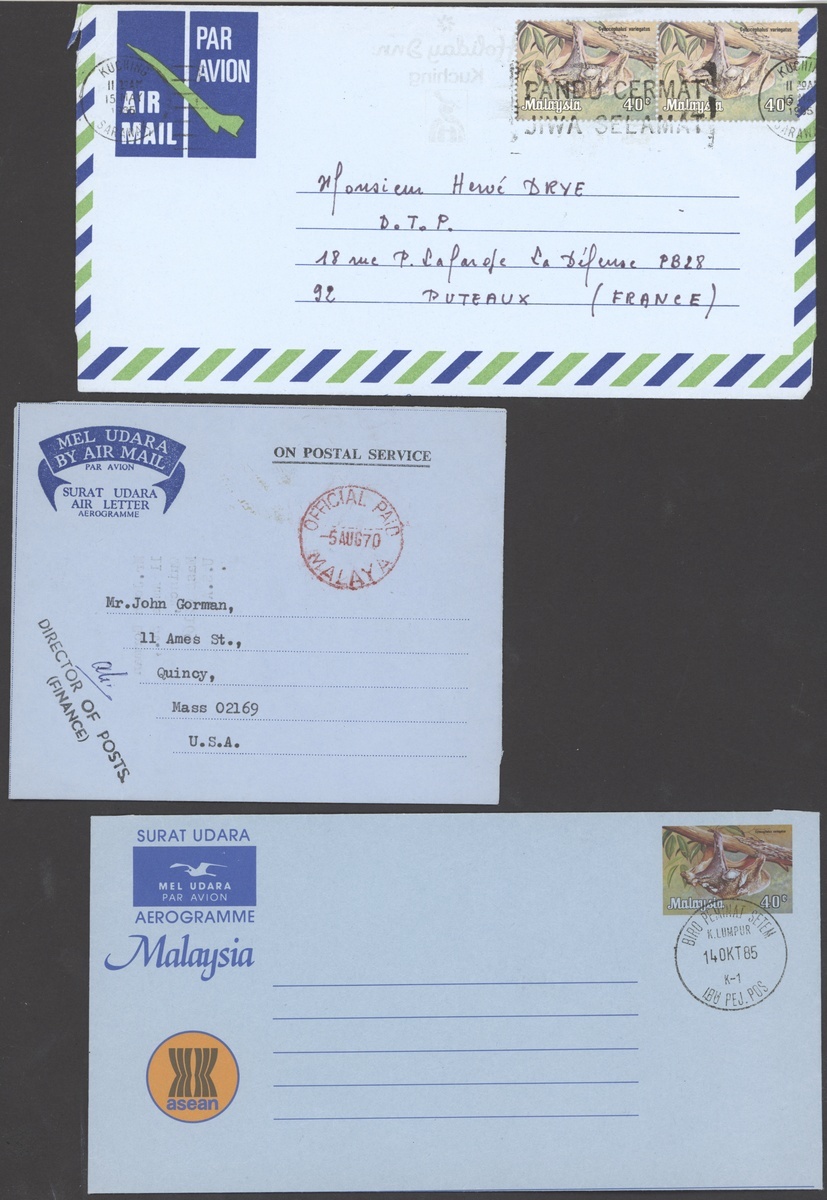 PAR
AVION
AIR
MAIL
KUCHING
11 30AM
SARAWAK
Holiday Inn
Kuching
Malaysia 40c
Malaysia 40c
PANDU CERMAT
JIWA SELAMAT
KUCHING
11 30AM
1985
SARAWAK
Monsieur Hervé DRYE
D.T.P.
18 rue P. Lafargue La Défense PB28
92 PUTEAUX (FRANCE)
MEL UDARA
BY AIR MAIL
PAR AVION
SURAT UDARA
AIR LETTER
AEROGRAMME
ON POSTAL SERVICE
OFFICIAL PAID
-5AUG70
MALAYA
Mr.John Gorman,
11 Ames St.,
Quincy,
Mass 02169
U.S.A.
DIRECTOR OF POSTS.
(FINANCE)
SURAT UDARA
MEL UDARA
PAR AVION
AEROGRAMME
Malaysia
asean
Malaysia 40c
BIRO PEMINAT SETEM
K.LUMPUR
14OKT85
K-1
IBU PEJ. POS